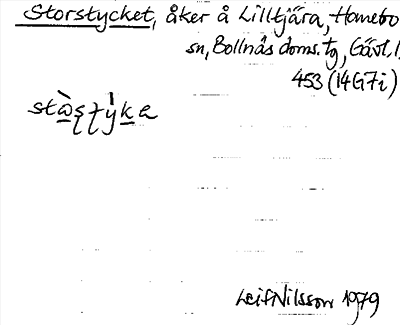 Storstycket, åker å Lilltjära, Hanebo
sn, Bollnäs doms. tg, Gävl. l.
453 (14G7i)
Leif Nilsson 1979